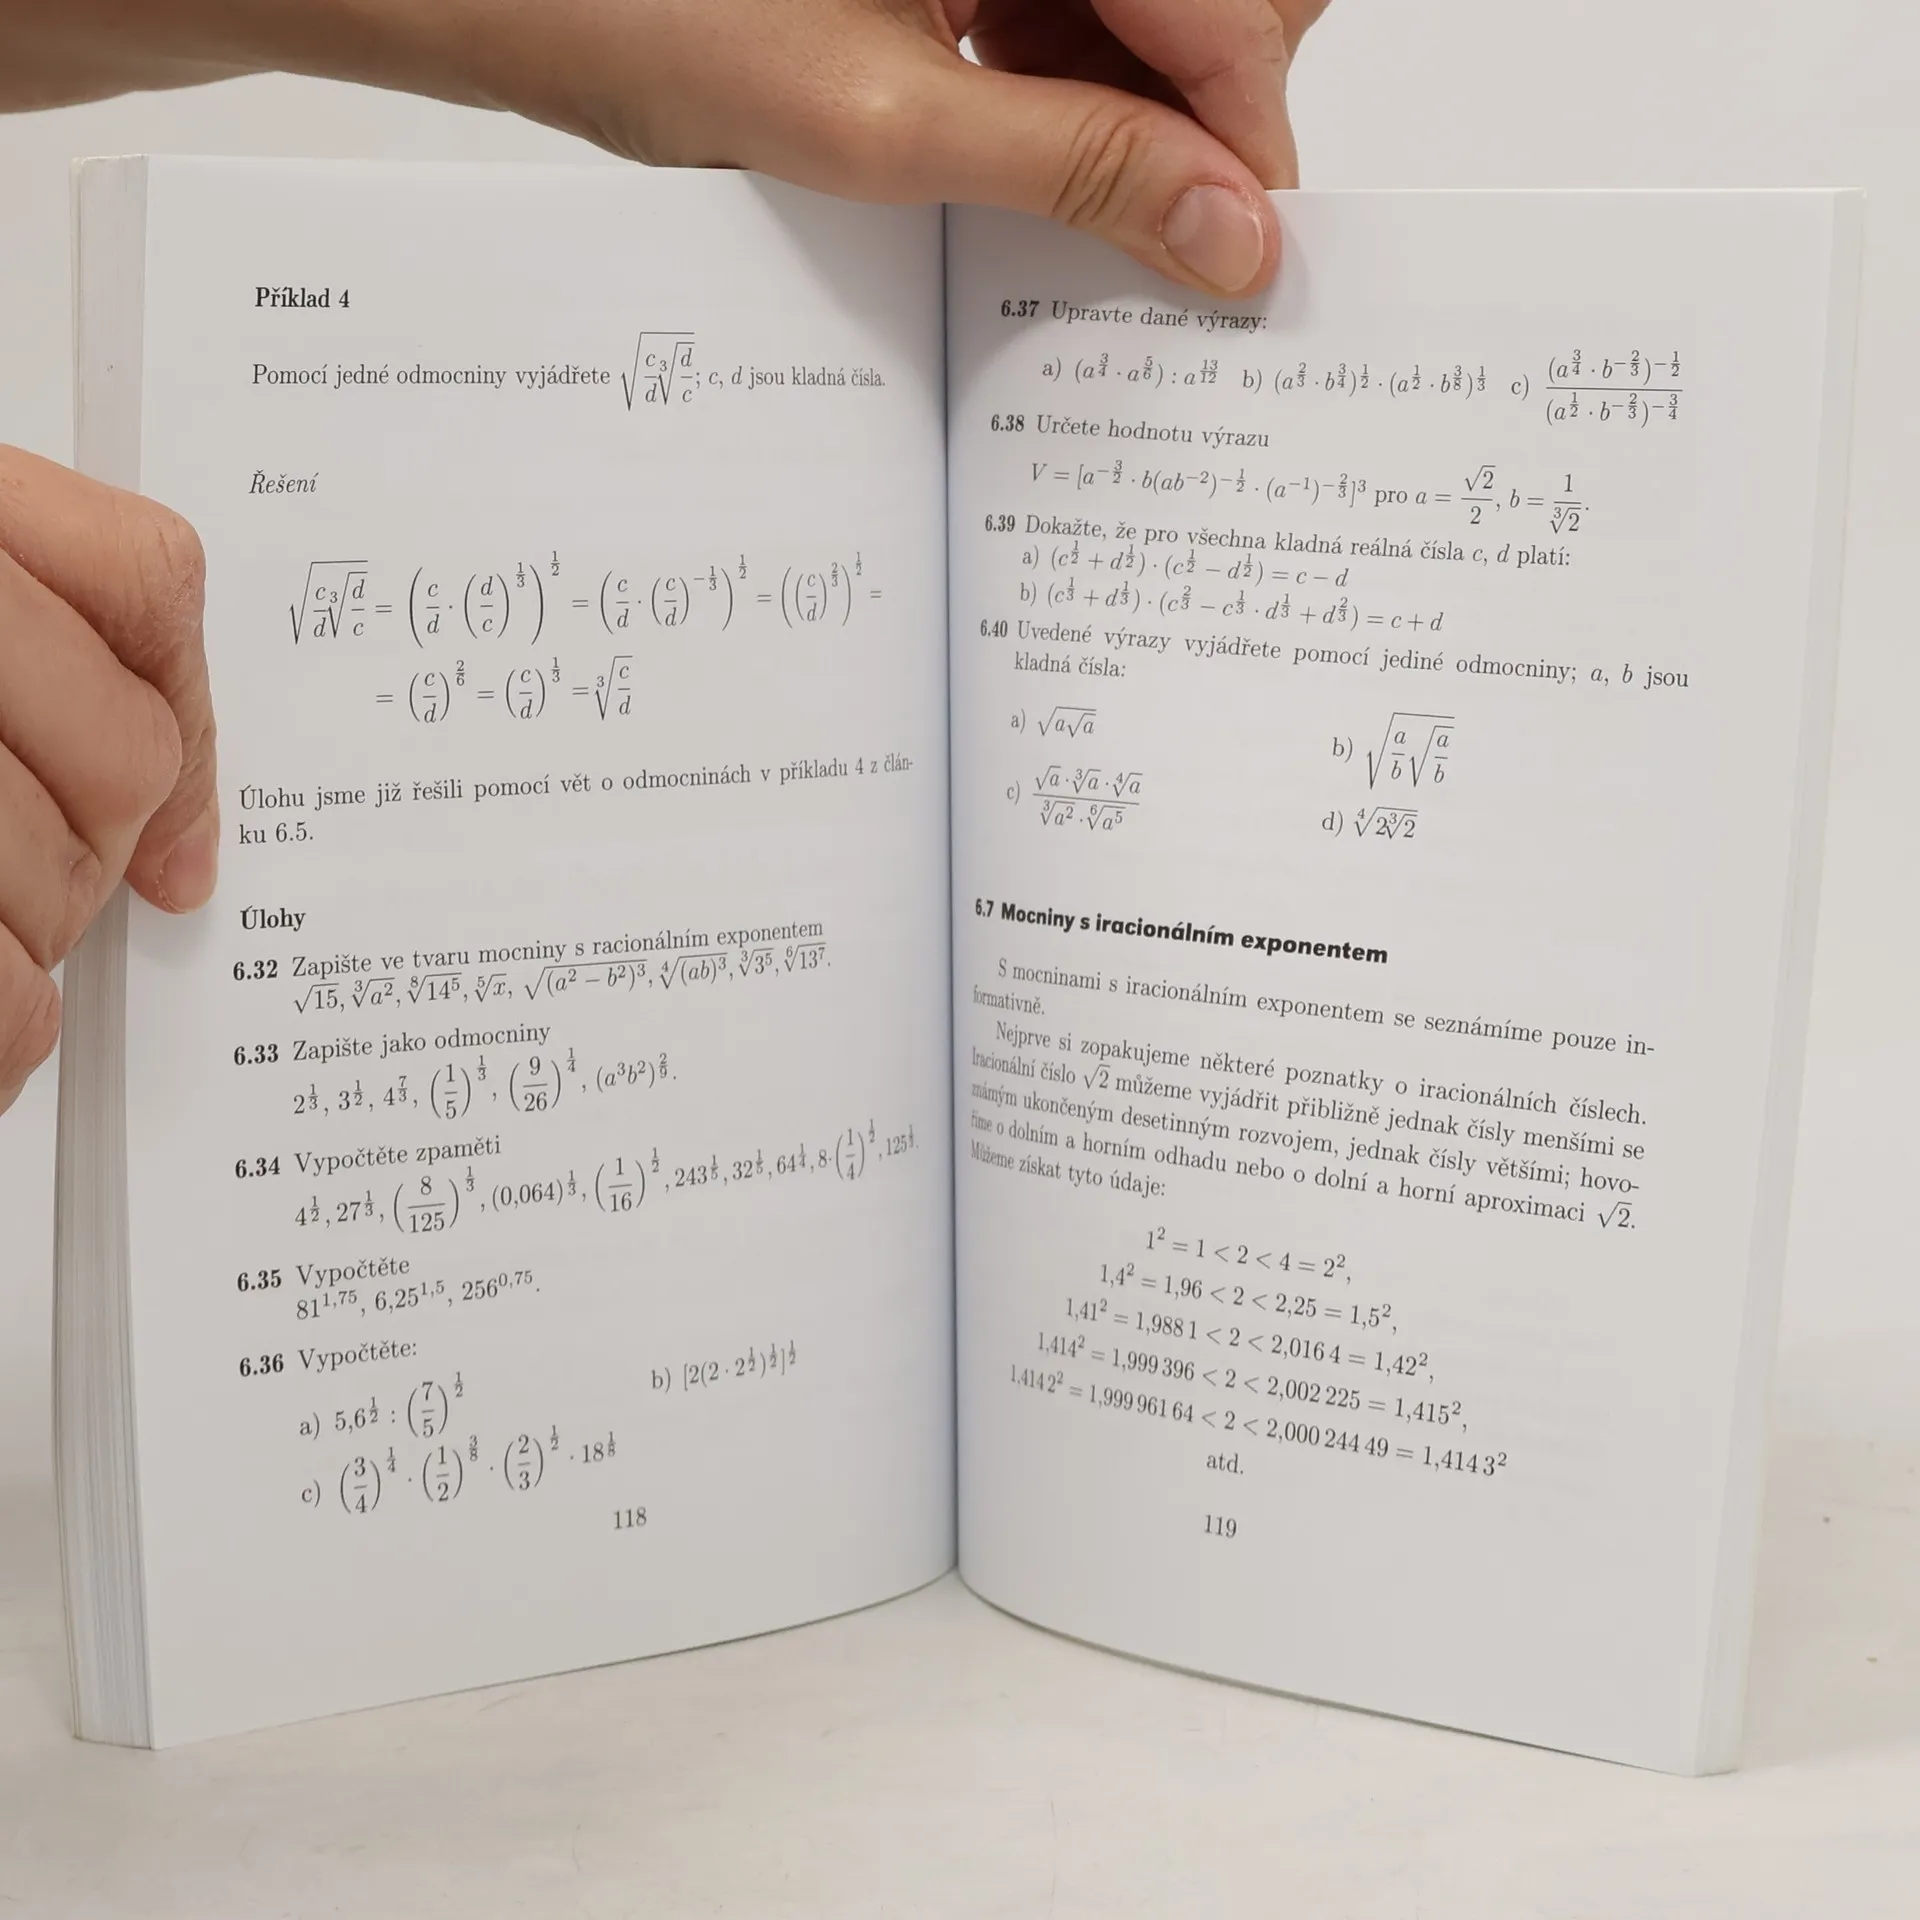 Příklad 4
Pomocí jedné odmocniny vyjádřete √(c/d ∛(d/c)); c, d jsou kladná čísla.
Řešení
√(c/d ∛(d/c)) = (c/d · (d/c)^(1/3))^(1/2) = (c/d · (c/d)^(−1/3))^(1/2) = ((c/d)^(2/3))^(1/2) =
= (c/d)^(2/6) = (c/d)^(1/3) = ∛(c/d)
Úlohu jsme již řešili pomocí vět o odmocninách v příkladu 4 z člán-
ku 6.5.
Úlohy
6.32 Zapište ve tvaru mocniny s racionálním exponentem
√15, ∛(a²), ⁸√(14⁵), ⁵√x, √((a² − b²)³), ⁴√((ab)³), ∛(3⁵), ⁶√(13⁷).
6.33 Zapište jako odmocniny
2^(1/3), 3^(1/2), 4^(7/3), (1/5)^(1/3), (9/26)^(1/4), (a³b²)^(2/9).
6.34 Vypočtěte zpaměti
4^(1/2), 27^(1/3), (8/125)^(1/3), (0,064)^(1/3), (1/16)^(1/2), 243^(1/5), 32^(1/5), 64^(1/4), 8·(1/4)^(1/2), 125^(1/3).
6.35 Vypočtěte
81^(1,75), 6,25^(1,5), 256^(0,75).
6.36 Vypočtěte:
a) 5,6^(1/2) : (7/5)^(1/2) b) [2(2 · 2^(1/2))^(1/2)]^(1/2)
c) (3/4)^(1/4) · (1/2)^(3/8) · (2/3)^(1/2) · 18^(1/8)
118
6.37 Upravte dané výrazy:
a) (a^(3/4) · a^(5/6)) : a^(13/12) b) (a^(2/3) · b^(3/4))^(1/2) · (a^(1/2) · b^(3/8))^(1/3) c) (a^(3/4) · b^(−2/3))^(−1/2) / (a^(1/2) · b^(−2/3))^(−3/4)
6.38 Určete hodnotu výrazu
V = [a^(−3/2) · b(ab⁻²)^(−1/2) · (a⁻¹)^(−2/3)]³ pro a = √2/2, b = 1/∛2.
6.39 Dokažte, že pro všechna kladná reálná čísla c, d platí:
a) (c^(1/2) + d^(1/2)) · (c^(1/2) − d^(1/2)) = c − d
b) (c^(1/3) + d^(1/3)) · (c^(2/3) − c^(1/3) · d^(1/3) + d^(2/3)) = c + d
6.40 Uvedené výrazy vyjádřete pomocí jediné odmocniny; a, b jsou
kladná čísla:
a) √(a√a) b) √(a/b √(a/b))
c) (√a · ∛a · ⁴√a) / (∛(a²) · ⁶√(a⁵)) d) ⁴√(2∛2)
6.7 Mocniny s iracionálním exponentem
S mocninami s iracionálním exponentem se seznámíme pouze in-
formativně.
Nejprve si zopakujeme některé poznatky o iracionálních číslech.
Iracionální číslo √2 můžeme vyjádřit přibližně jednak čísly menšími se
známým ukončeným desetinným rozvojem, jednak čísly většími; hovo-
říme o dolním a horním odhadu nebo o dolní a horní aproximaci √2.
Můžeme získat tyto údaje:
1² = 1 < 2 < 4 = 2²,
1,4² = 1,96 < 2 < 2,25 = 1,5²,
1,41² = 1,988 1 < 2 < 2,016 4 = 1,42²,
1,414² = 1,999 396 < 2 < 2,002 225 = 1,415²,
1,414 2² = 1,999 961 64 < 2 < 2,000 244 49 = 1,414 3²
atd.
119